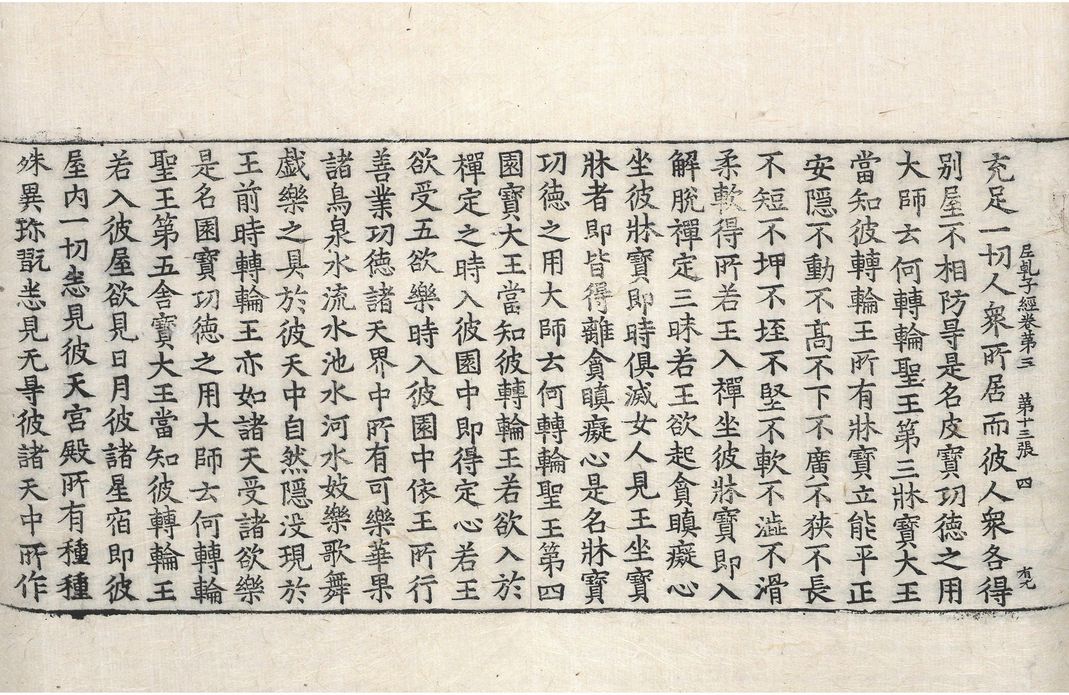 𡰱乹子經卷第三 第十三張 四 有元
充足一切人衆所居而彼人衆各得
别屋不相防㝵是名皮寳功徳之用
大師云何轉輪聖王第三牀寳大王
當知彼轉輪王所有牀寳立能平正
安隠不動不髙不下不廣不狭不長
不短不坤不垤不堅不軟不澁不滑
柔軟得所若王入禪坐彼牀寳即入
解脫禪定三昧若王欲起貪瞋癡心
坐彼牀寳即時俱滅女人見王坐寳
牀者即皆得離貪瞋癡心是名牀寳
功徳之用大師云何轉輪聖王第四
園寳大王當知彼轉輪王若欲入於
禪定之時入彼園中即得定心若王
欲受五欲樂時入彼園中依王所行
善業功徳諸天界中所有可樂華果
諸鳥泉水流水池水河水妓樂歌舞
戯樂之具於彼天中自然隠没現於
王前時轉輪王亦如諸天受諸欲樂
是名園寳功徳之用大師云何轉輪
聖王第五舎寳大王當知彼轉輪王
若入彼屋欲見日月彼諸星宿即彼
屋内一切悉見彼天宮殿所有種種
殊異珎翫悉見无㝵彼諸天中所作